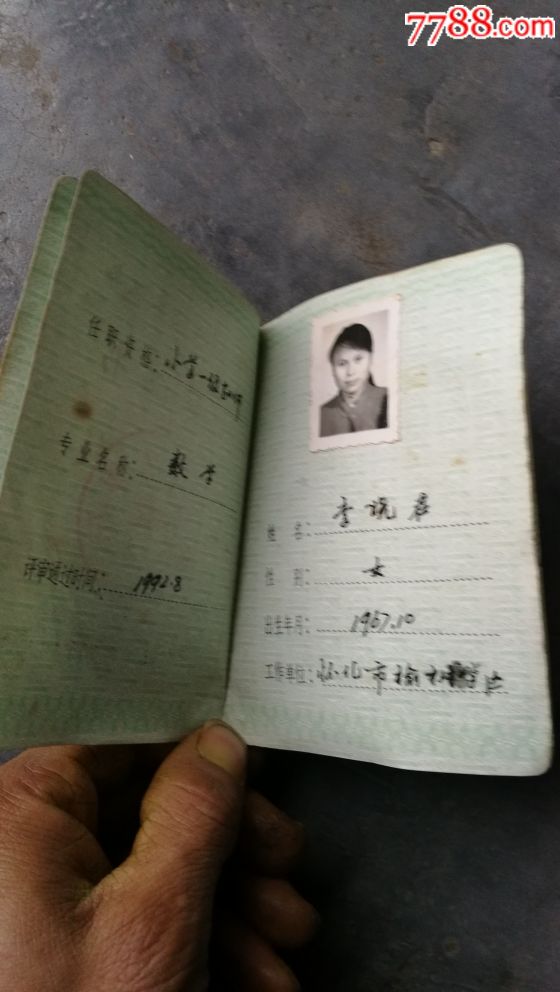 7788.com
任职资格：小学一级教师
专业名称：数学
评审通过时间：1992.8
姓名：李
性别：女
出生年月：1967.10
工作单位：怀化市榆